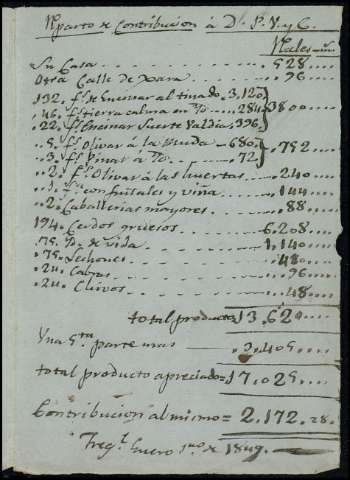 Reparto de Contribucion á D. P. V. y C.
Reales vn.
Su Casa . . . . . 528
Otra Calle de Xara . . . . . 96
192. fs. de Encinar al tinado . 3.120
46. fs. tierra calma en Yo. . . 284 } 3800
22. fs. Encinar Suerte Valdia . 396
5. fs. Olivar á la Ruda . . 680 } 752
3. fs. Pinar á Yo. . . . 72
2. fs. Olivar á las huertas . . . 240
1. fa. con frutales y viña . . . 144
2. Caballerias mayores . . . 88
194. Cerdos gruesos . . . . 6.208
75. Yd. de vida . . . . 1.140
75. Lechones . . . . 480
24. Cabras . . . . 96
24. Chivos . . . . 48
total producto 13.620
Una 5.ta parte mas . . . 3.405
total producto apreciado = 17.025
Contribucion al mismo = 2.172.28
Freg.l Enero 1.ro de 1849